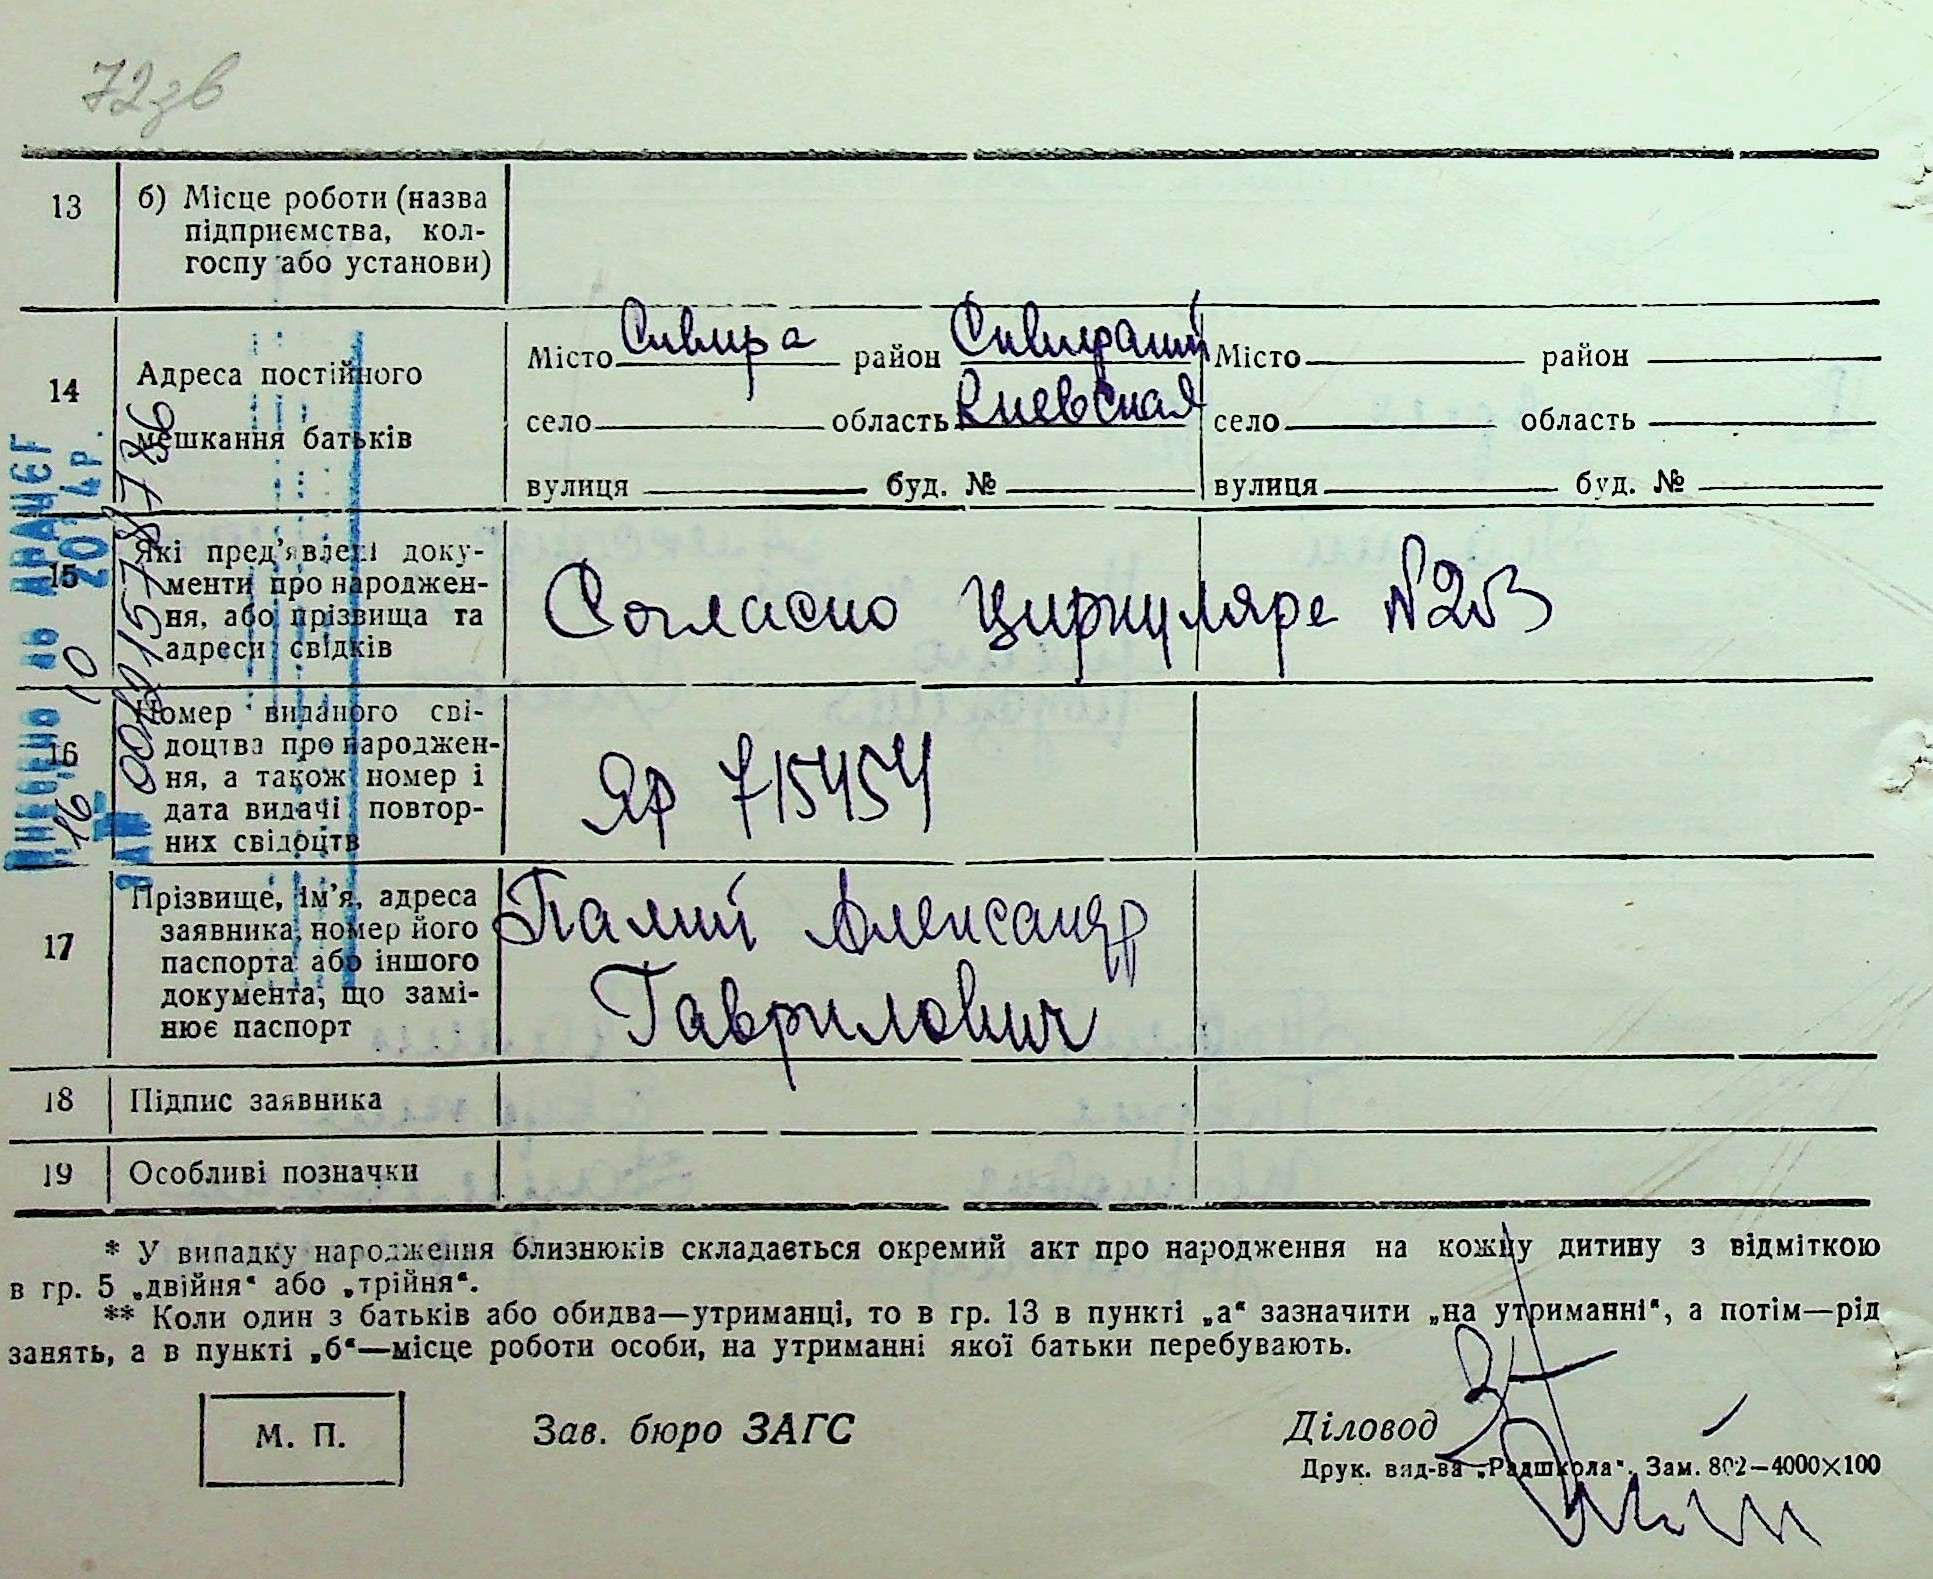 72зв
13 б) Місце роботи (назва
підприємства, кол-
госпу або установи)
14 Адреса постійного
мешкання батьків
Місто Сквира район Сквирский Місто район
село область Киевская село область
вулиця буд. № вулиця буд. №
15 Які пред'явлені доку-
менти про народжен-
ня, або прізвища та
адреси свідків
Согласно Циркуляре №203
16 Номер виданого сві-
доцтва про народжен-
ня, а також номер і
дата видачі повтор-
них свідоцтв
ЯР 715454
17 Прізвище, ім'я, адреса
заявника, номер його
паспорта або іншого
документа, що замі-
нює паспорт
Палий Александр
Гаврилович
18 Підпис заявника
19 Особливі позначки
Внесено до ДРАЦСГ
16 10 2014р.
ЗА № 00157
* У випадку народження близнюків складається окремий акт про народження на кожну дитину з відміткою
в гр. 5 „двійня“ або „трійня“.
** Коли один з батьків або обидва—утриманці, то в гр. 13 в пункті „а“ зазначити „на утриманні“, а потім—рід
занять, а в пункті „б“—місце роботи особи, на утриманні якої батьки перебувають.
М. П. Зав. бюро ЗАГС Діловод
Друк. вид-ва „Радшкола“. Зам. 802—4000×100